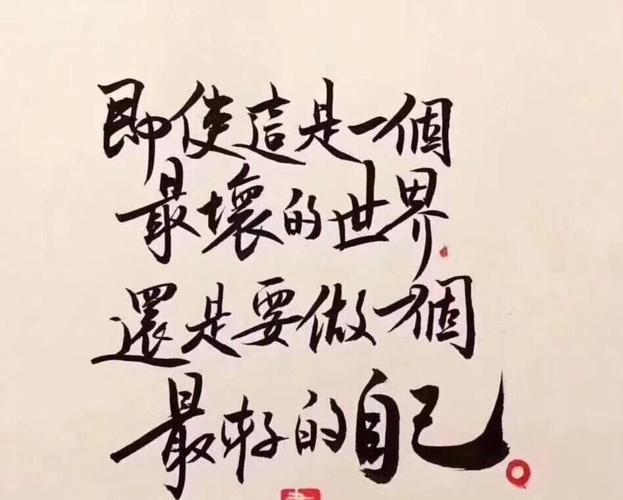 即使這是一個
最壞的世界
還是要做一個
最好的自己